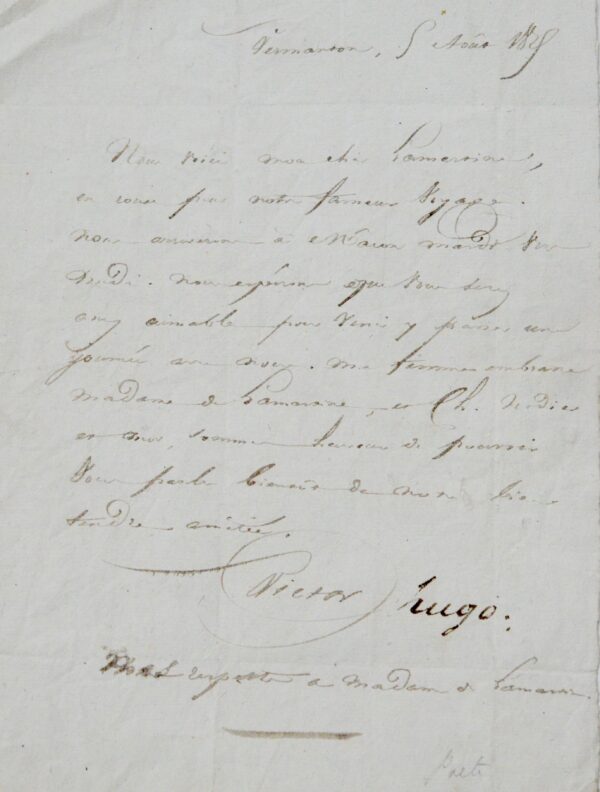 Vermanton, 5 Août 1825
Nous voici mon cher Lamartine,
en route pour notre fameux Voyage.
nous arriverons à Mâcon mardi vers
midi. nous espérons que vous serez
assez aimable pour venir y passer une
journée avec nous. ma femme embrasse
madame de Lamartine, et Ch. Nodier
et moi, sommes heureux de pouvoir
vous parler bientôt de notre bien
tendre amitié.
Victor Hugo.
Mes respects à madame de Lamartine.